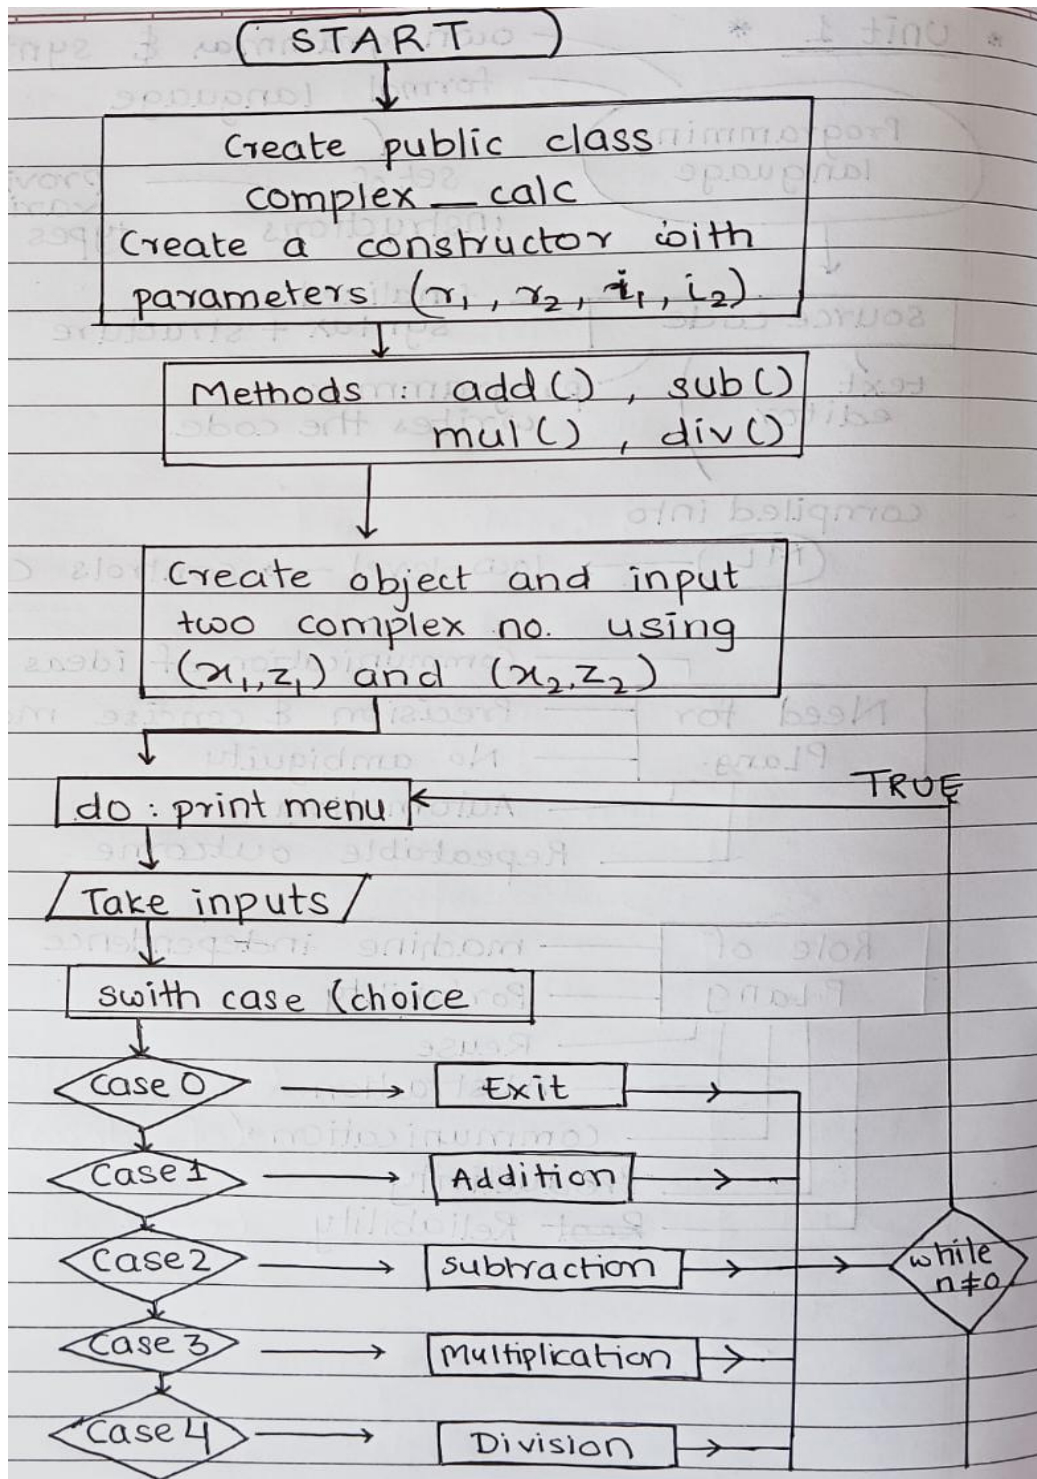 START
Create public class
complex_calc
Create a constructor with
parameters (r₁, r₂, i₁, i₂)
Methods : add(), sub()
mul(), div()
Create object and input
two complex no. using
(x₁,z₁) and (x₂,z₂)
do : print menu
TRUE
Take inputs
swith case (choice
case 0
Exit
case 1
Addition
case 2
subtraction
while
n≠0
case 3
multiplication
case 4
Division